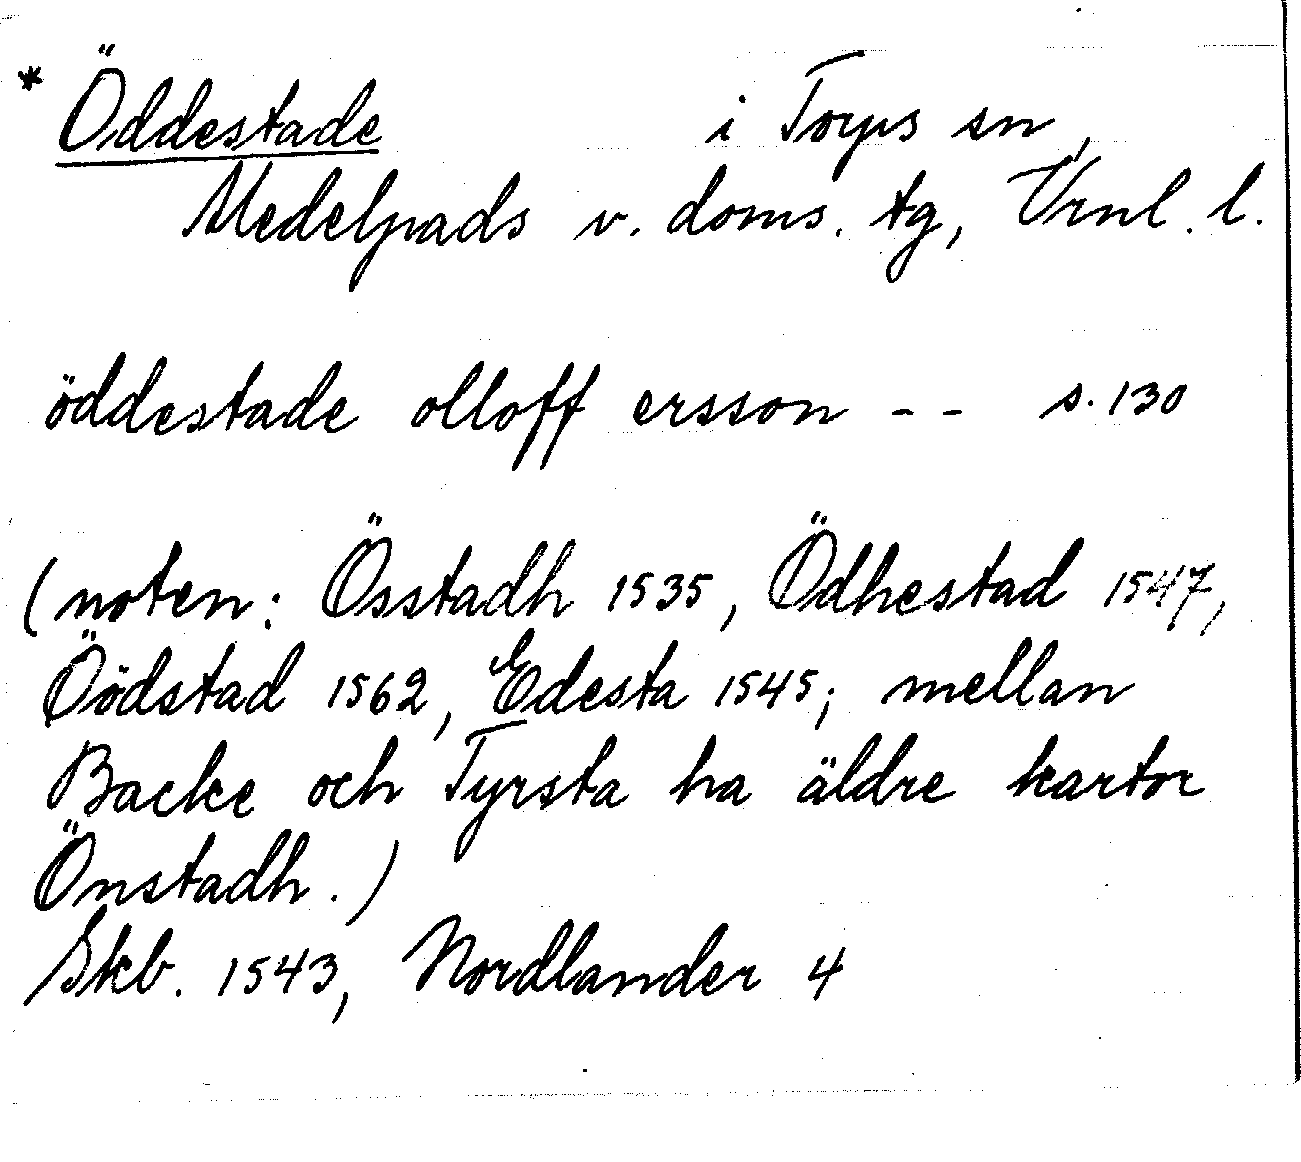 * Öddestade i Torps sn,
Medelpads v. doms. tg, Vrnl. l.
öddestade olloff ersson - - s. 130
(noten: Össtadh 1535, Ödhestad 1547,
Öödstad 1562, Edesta 1545; mellan
Backe och Tyrsta ha äldre kartor
Önstadh.)
Skb. 1543, Nordlander 4